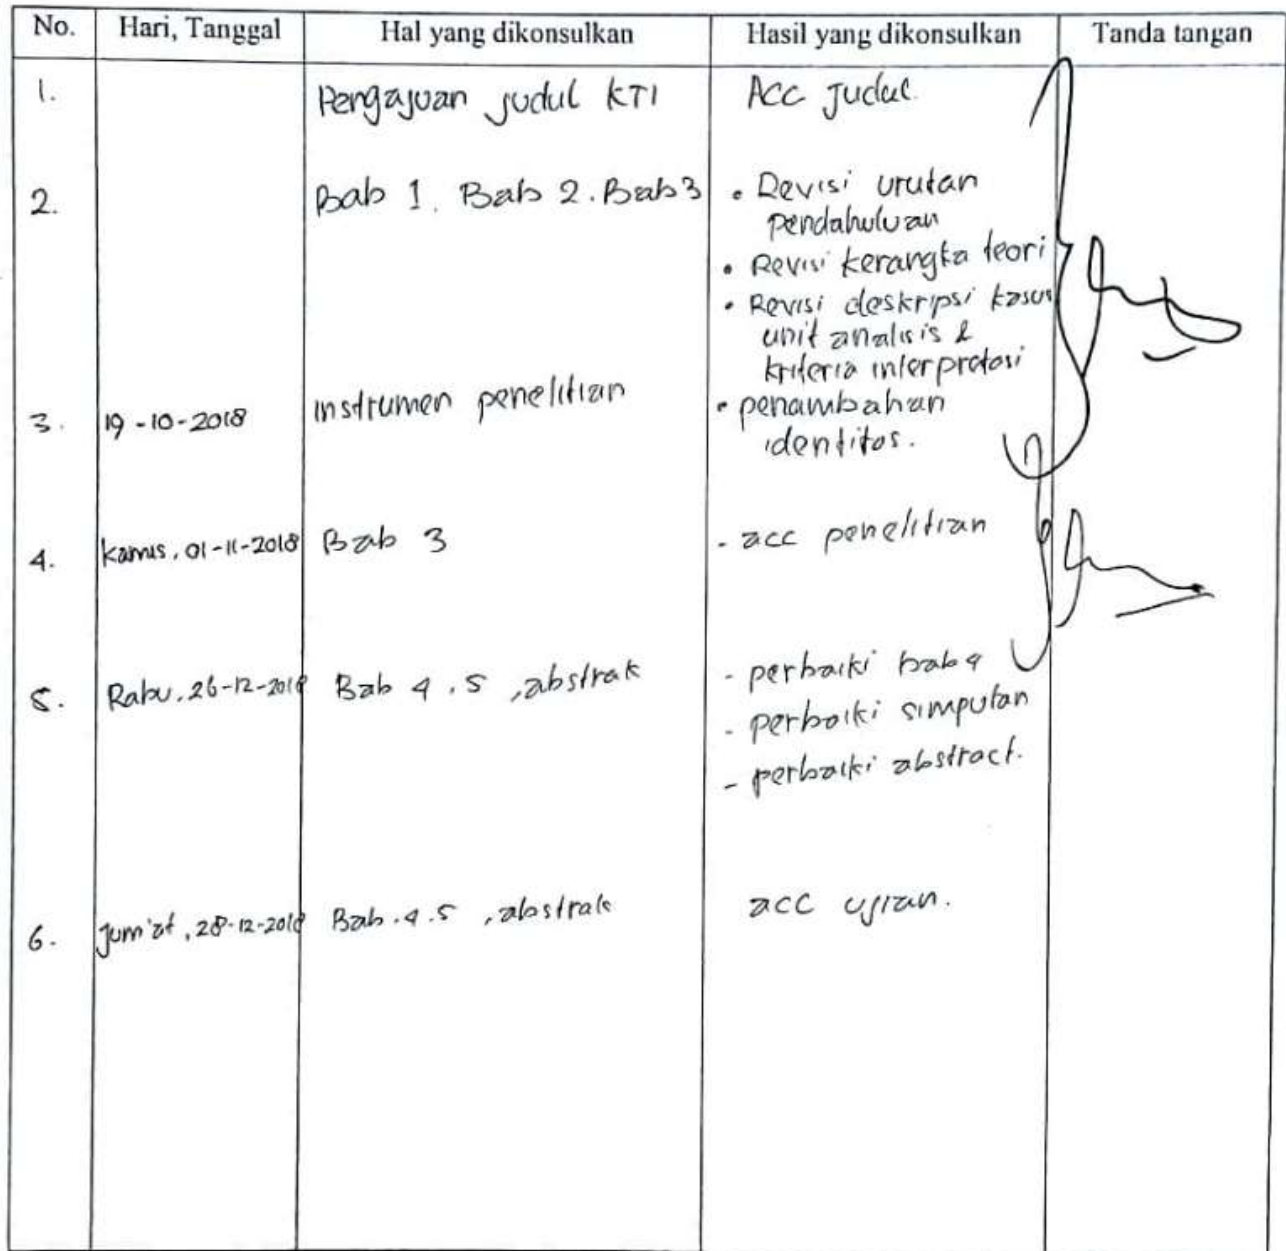 No. Hari, Tanggal Hal yang dikonsulkan Hasil yang dikonsulkan Tanda tangan
1. Pengajuan judul KTI Acc Judul.
2. Bab 1. Bab 2. Bab 3 • Revisi urutan
pendahuluan
• Revisi kerangka teori
• Revisi deskripsi kasus
unit analisis &
kriteria interpretasi
3. 19-10-2018 instrumen penelitian • penambahan
identitas.
4. Kamis, 01-11-2018 Bab 3 - acc penelitian
5. Rabu, 26-12-2018 Bab 4.5, abstrak - perbaiki bab 4
- perbaiki simpulan
- perbaiki abstract.
6. Jum'at, 28-12-2018 Bab.4.5, abstrak acc ujian.